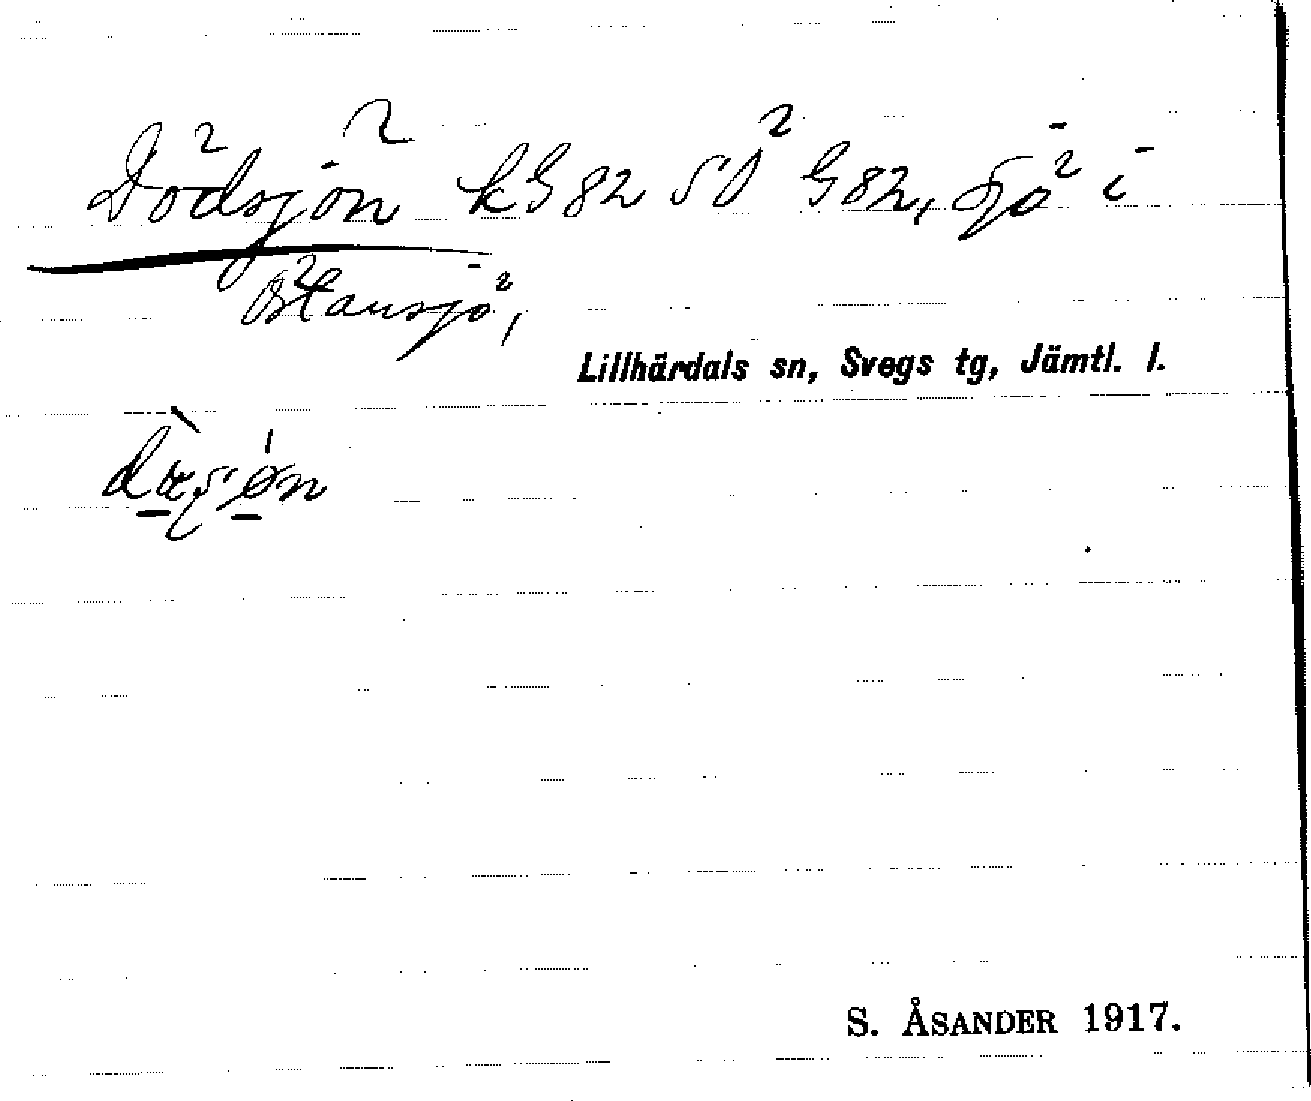 Dödsjön kG 82 SÖ G 82, sjö i
Östansjö,
Lillhärdals sn, Svegs tg, Jämtl. l.
S. ÅSANDER 1917.